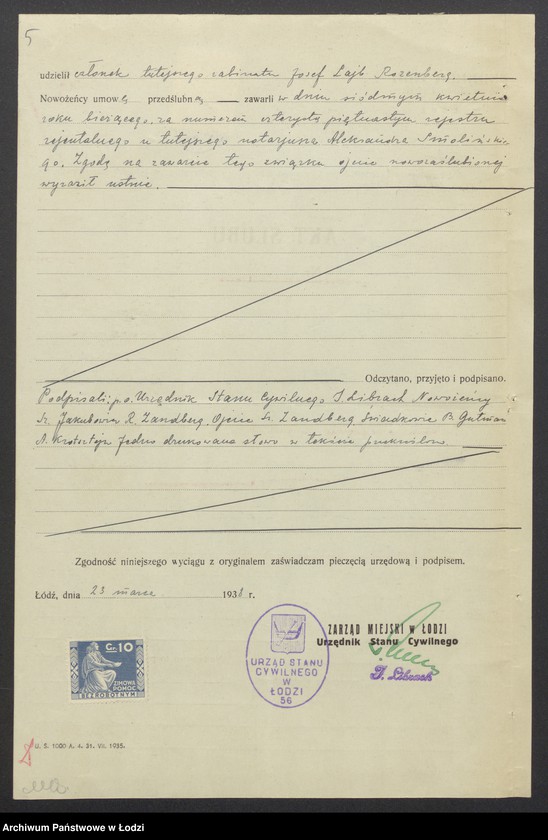 5
udzielił członek tutejszego rabinatu Josef Lajb Rozenberg.
Nowożeńcy umowę przedślubną zawarli w dniu siódmym kwietnia
roku bieżącego, za numerem czterysta piętnastym rejestru
rejentalnego u tutejszego notarjusza Aleksandra Smolińskie-
go. Zgodę na zawarcie tego związku ojciec nowozaślubionej
wyraził ustnie.
Odczytano, przyjęto i podpisano.
Podpisali: p.o. Urzędnik Stanu Cywilnego J Librach Nowożeńcy
Sz. Jakubowicz R. Zandberg. Ojciec Sz. Zandberg Świadkowie B. Gutman
A. Krotosztejn Jedno drukowane słowo w tekście
Zgodność niniejszego wyciągu z oryginałem zaświadczam pieczęcią urzędową i podpisem.
Łódź, dnia 23 marca 1938 r.
ZARZĄD MIEJSKI w ŁODZI
Urzędnik Stanu Cywilnego
J. Librach
URZĄD STANU
CYWILNEGO
W
ŁODZI
56
Gr. 10
ZIMOWA
POMOC
BEZROBOTNYM
U. S. 1000 A. 4. 31. VII. 1935.
Archiwum Państwowe w Łodzi